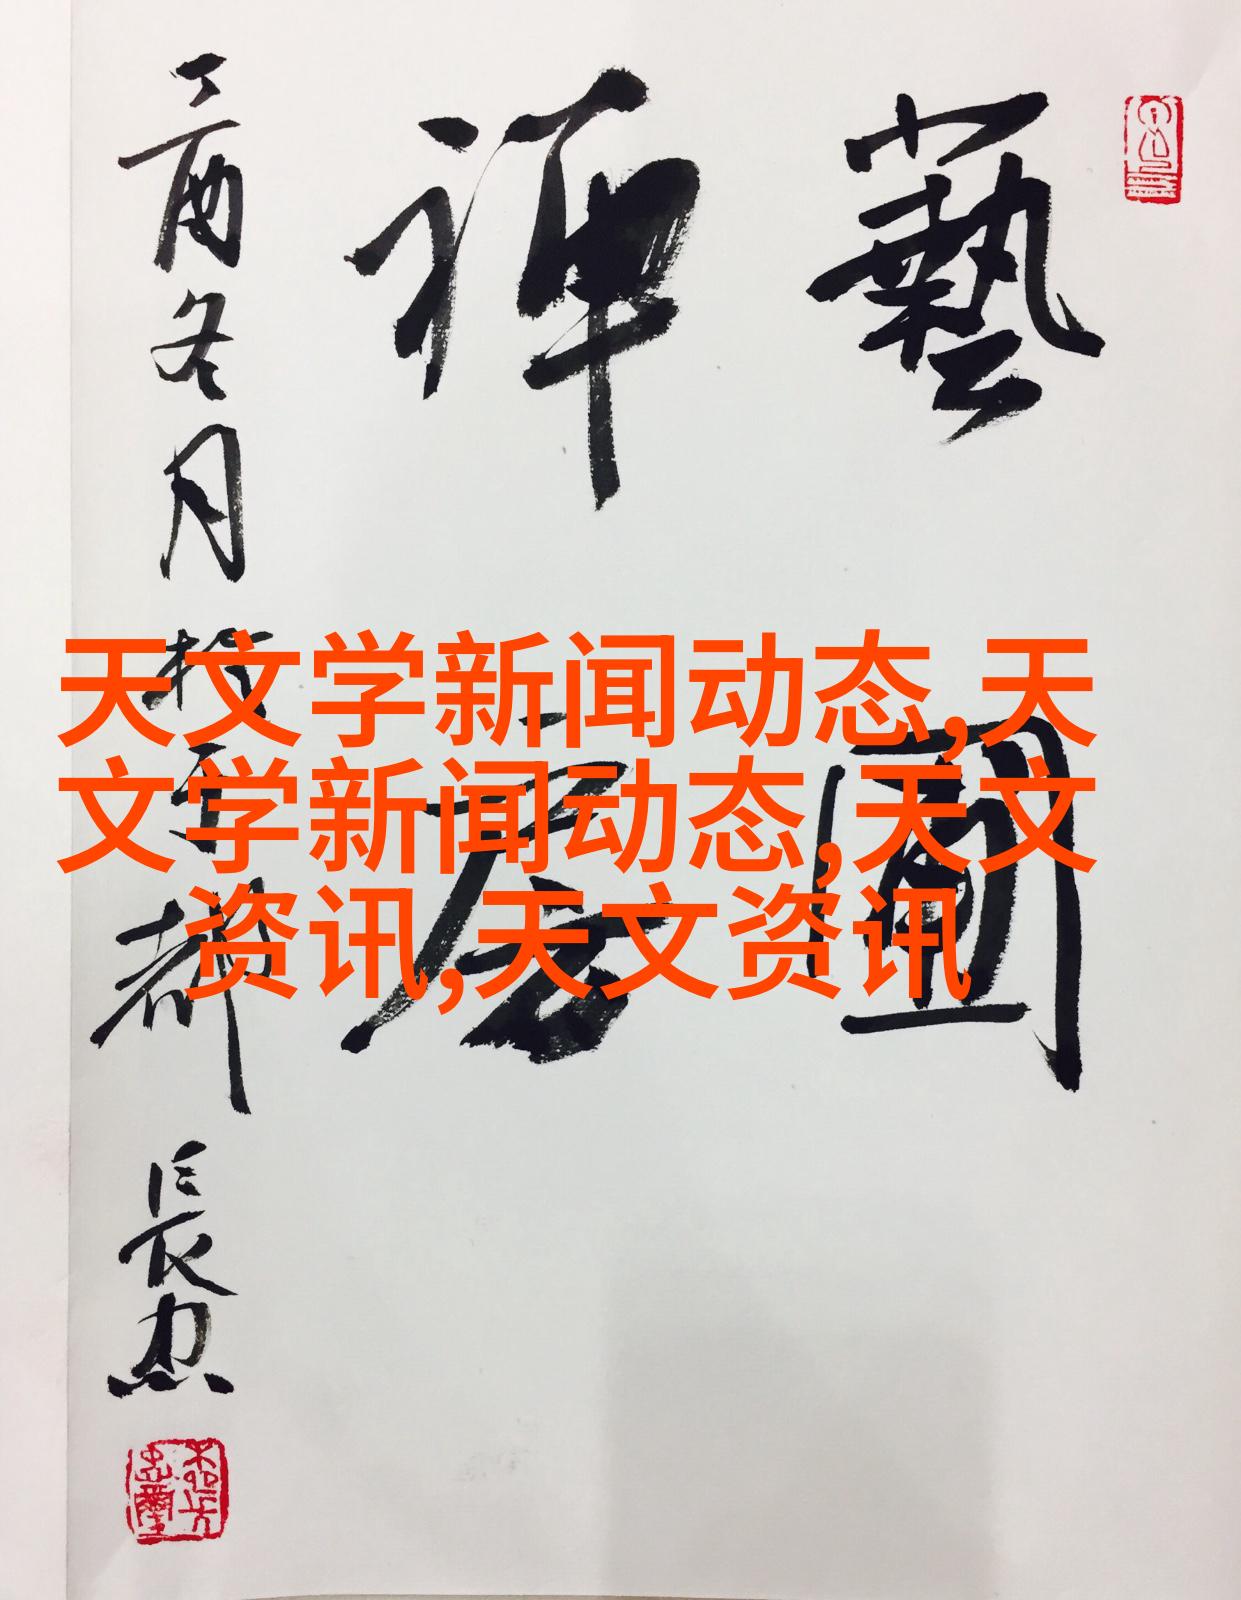 藝圃
禅居
丁酉冬月於
都
長忠
天文学新闻动态,天
文学新闻动态,天文
资讯,天文资讯